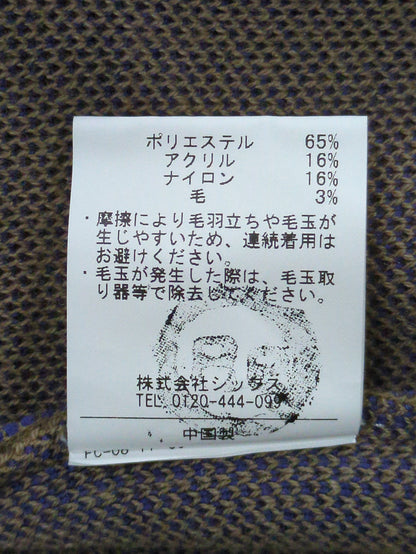 ポリエステル 65%
アクリル 16%
ナイロン 16%
毛 3%
・摩擦により毛羽立ちや毛玉が
生じやすいため、連続着用は
お避けください。
・毛玉が発生した際は、毛玉取
り器等で除去してください。
株式会社シックス
TEL 0120-444-099
中国製